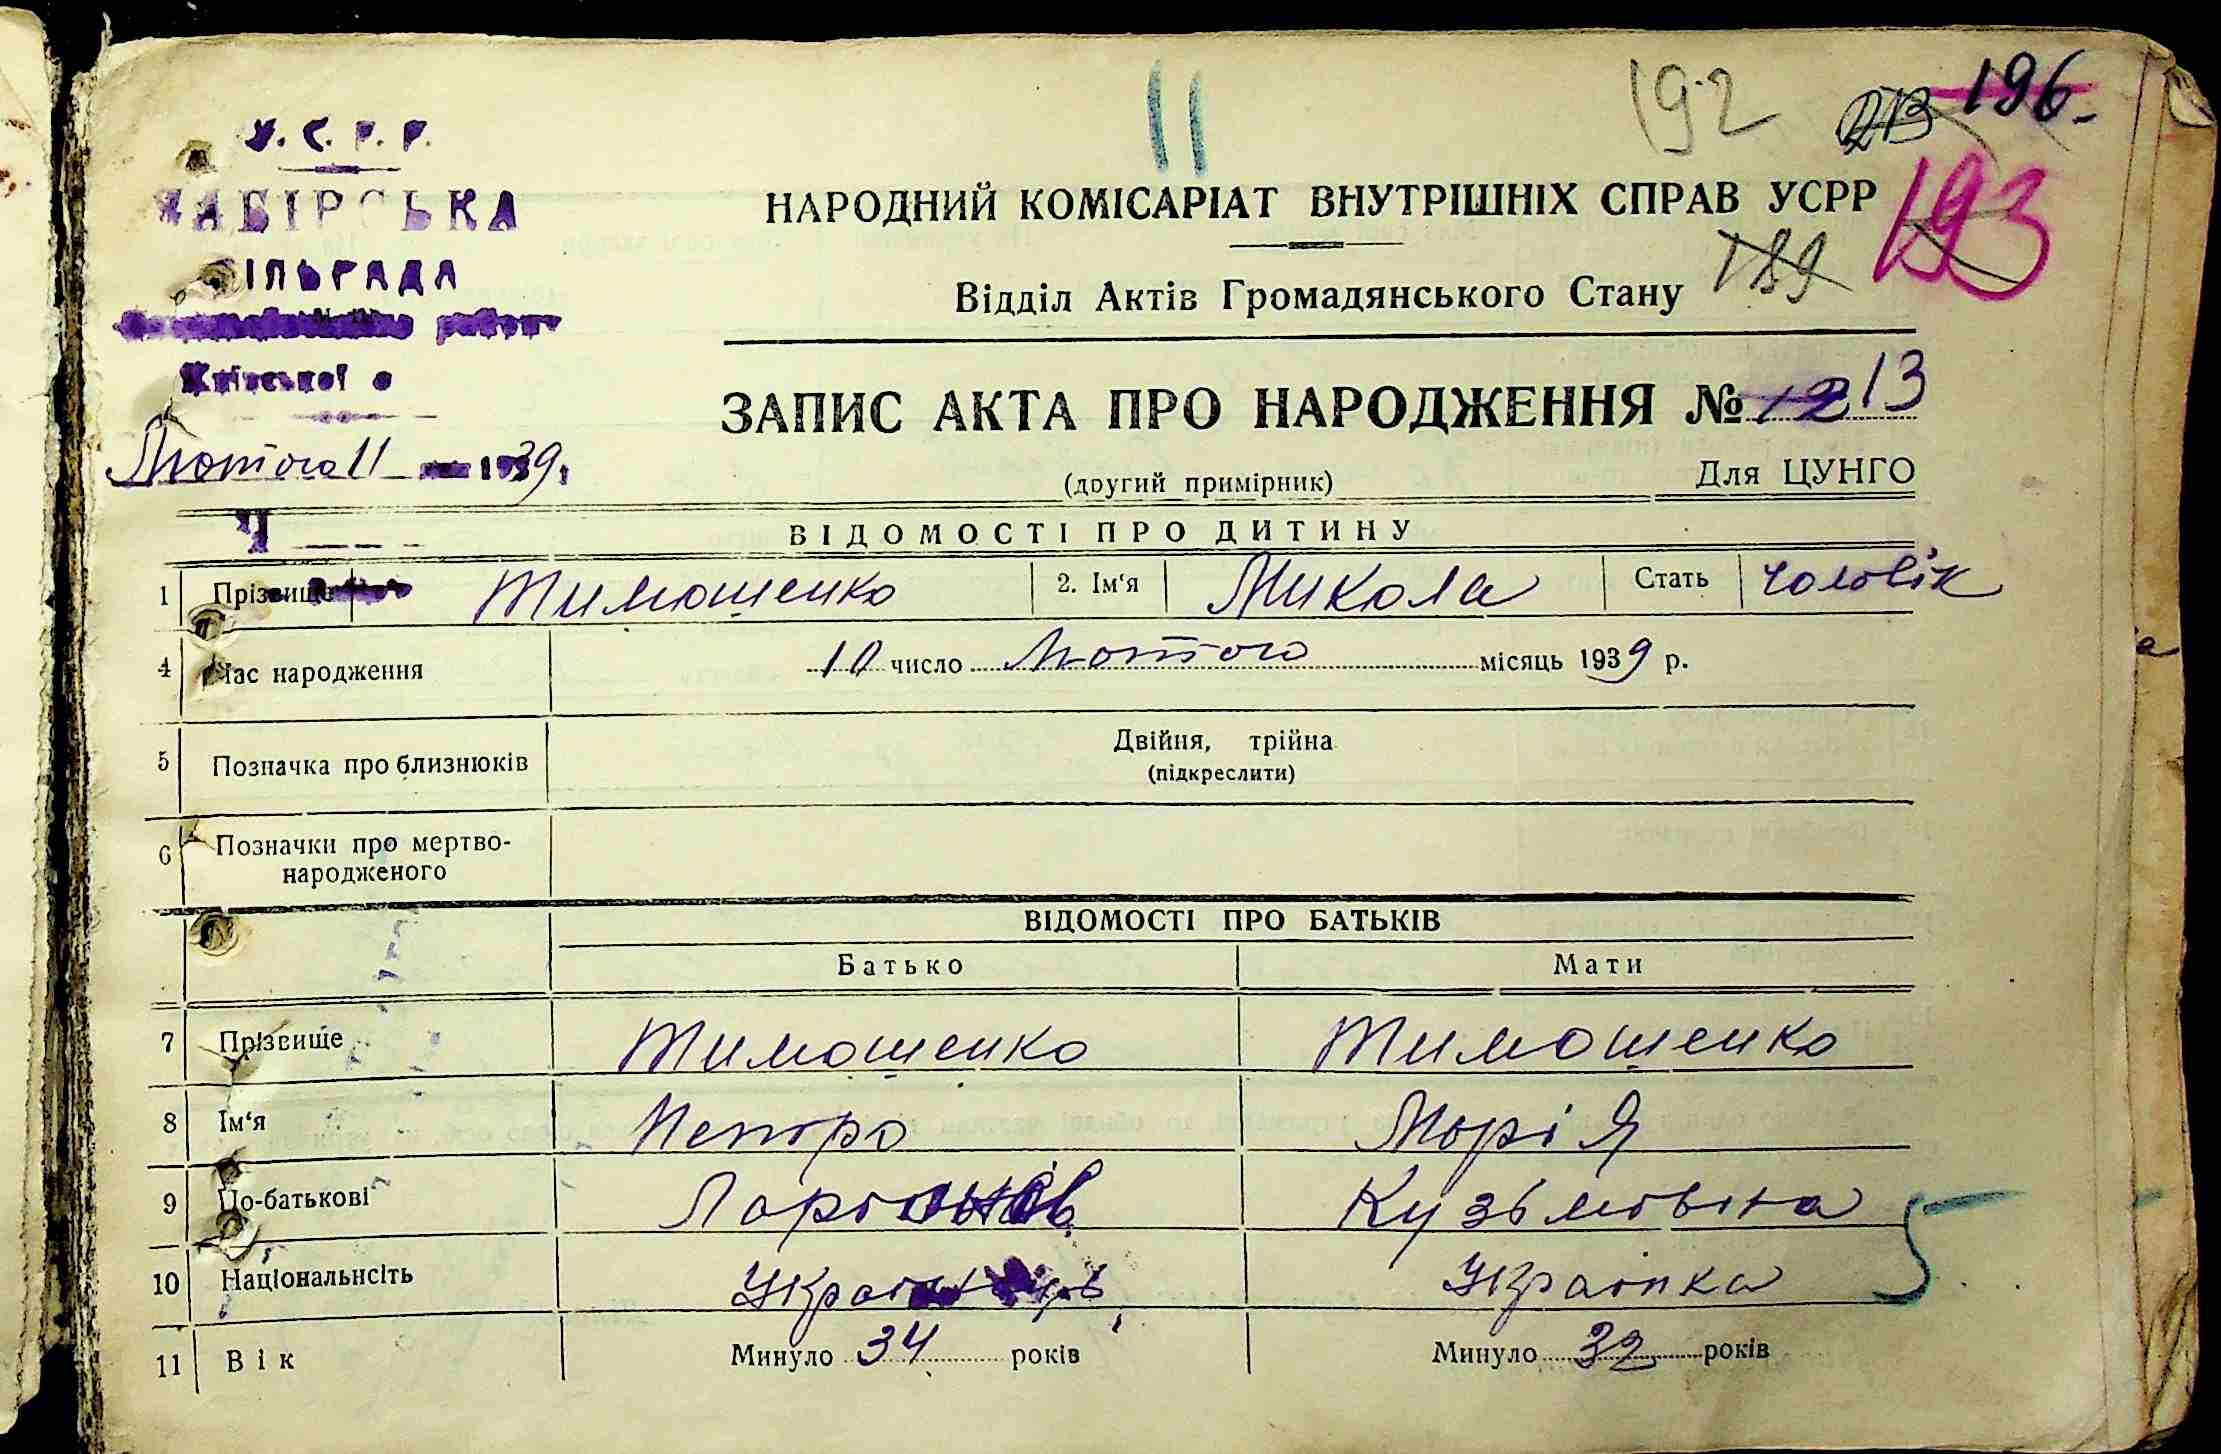 11 192 213 196.
У.С.Р.Р.
НАРОДНИЙ КОМІСАРІАТ ВНУТРІШНІХ СПРАВ УСРР 193
189
Відділ Актів Громадянського Стану
Київської о
ЗАПИС АКТА ПРО НАРОДЖЕННЯ № 12 13
Лютого 11 1939р.
(другий примірник) Для ЦУНГО
Ч
ВІДОМОСТІ ПРО ДИТИНУ
1 Прізвище Тимошенко 2. Ім'я Микола Стать чоловік
4 Час народження 10 число Лютого місяць 1939 р.
5 Позначка про близнюків Двійня, трійна
(підкреслити)
6 Позначки про мертво-
народженого
ВІДОМОСТІ ПРО БАТЬКІВ
Батько Мати
7 Прізвище Тимошенко Тимошенко
8 Ім'я Петро Марія
9 По-батькові Кузьмівна
10 Національнсіть Українка 5
11 Вік Минуло 34 років Минуло 32 років